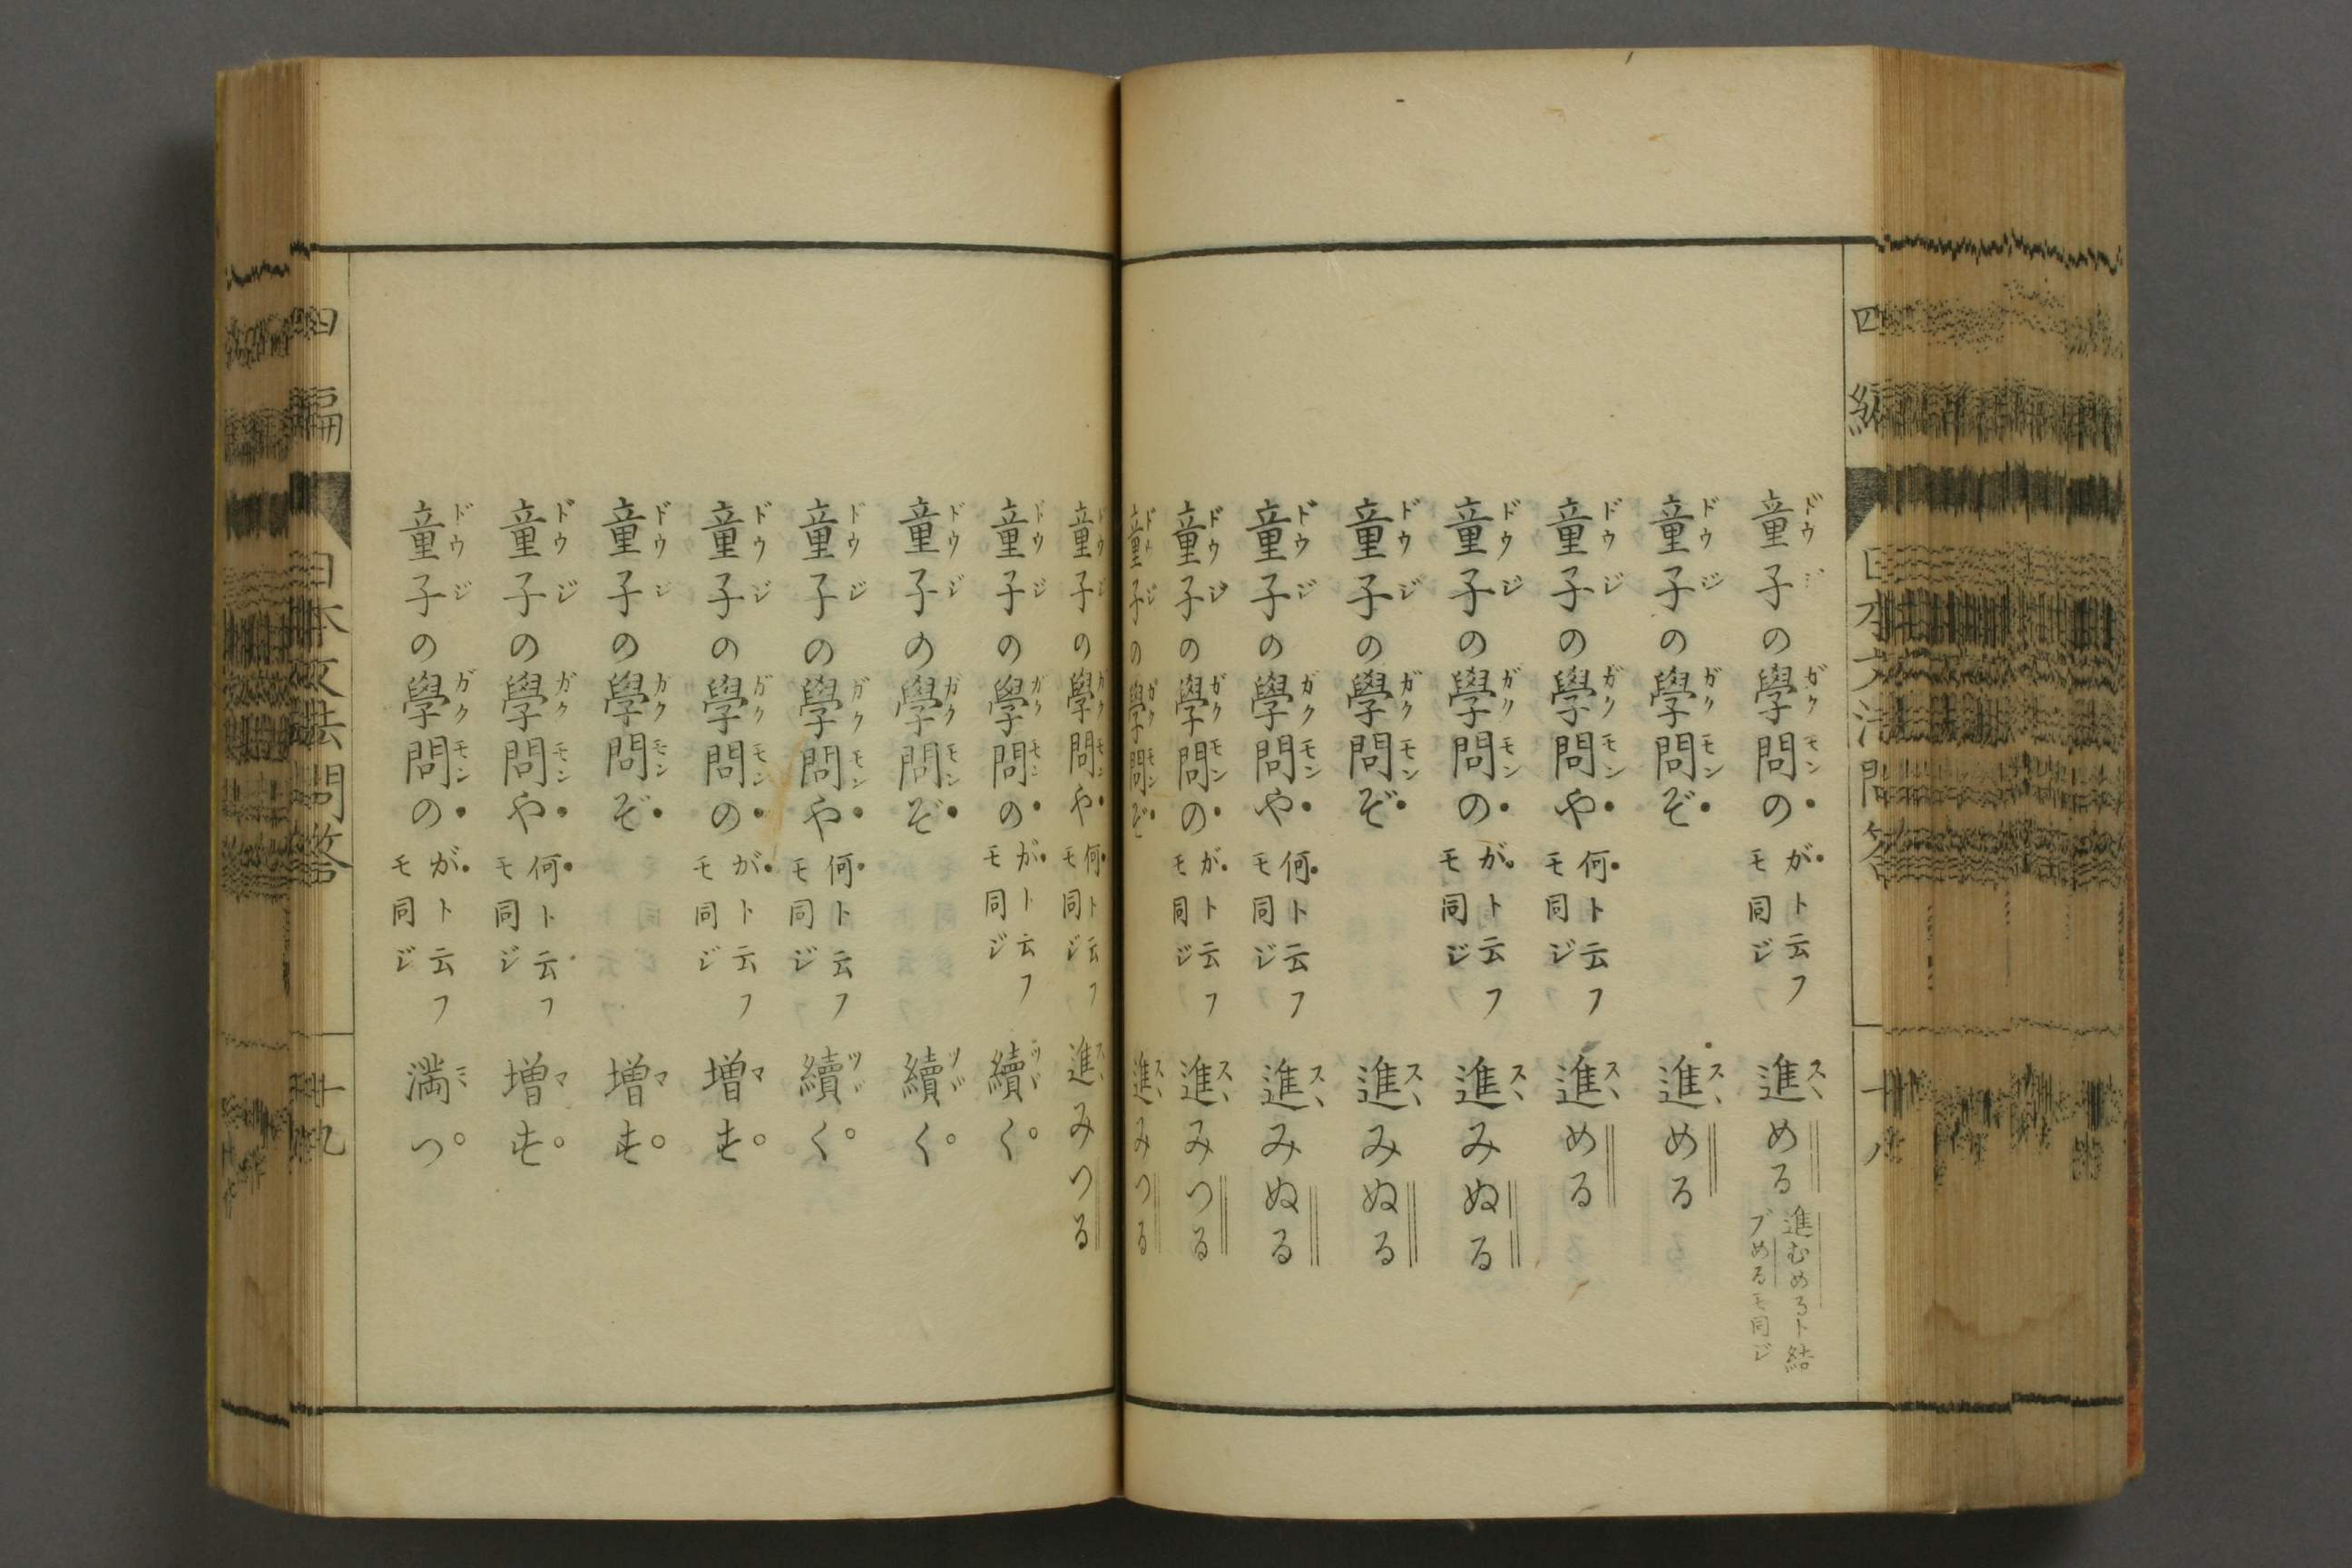 童子の學問の がト云フモ同ジ 進める 進むめるト結ブめるモ同ジ
童子の學問ぞ 進める
童子の學問や 何ト云フモ同ジ 進める
童子の學問の がト云フモ同ジ 進みぬる
童子の學問ぞ 進みぬる
童子の學問や 何ト云フモ同ジ 進みぬる
童子の學問の がト云フモ同ジ 進みつる
童子の學問ぞ 進みつる
童子の學問や 何ト云フモ同ジ 進みつる
童子の學問の がト云フモ同ジ 續く
童子の學問ぞ 續く
童子の學問や 何ト云フモ同ジ 續く
童子の學問の がト云フモ同ジ 増す
童子の學問ぞ 増す
童子の學問や 何ト云フモ同ジ 増す
童子の學問の がト云フモ同ジ 満つ
四編 日本文法問答 十九